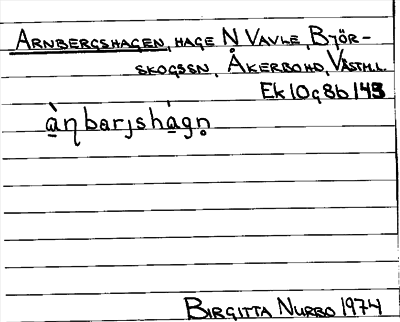 ARNBERGSHAGEN, HAGE N VAVLE, BJÖR-
SKOGSSN, ÅKERBOHD, VÄSTM.L.
Ek 10g8b 143
ànbarjshágn̥
BIRGITTA NURBO 1974